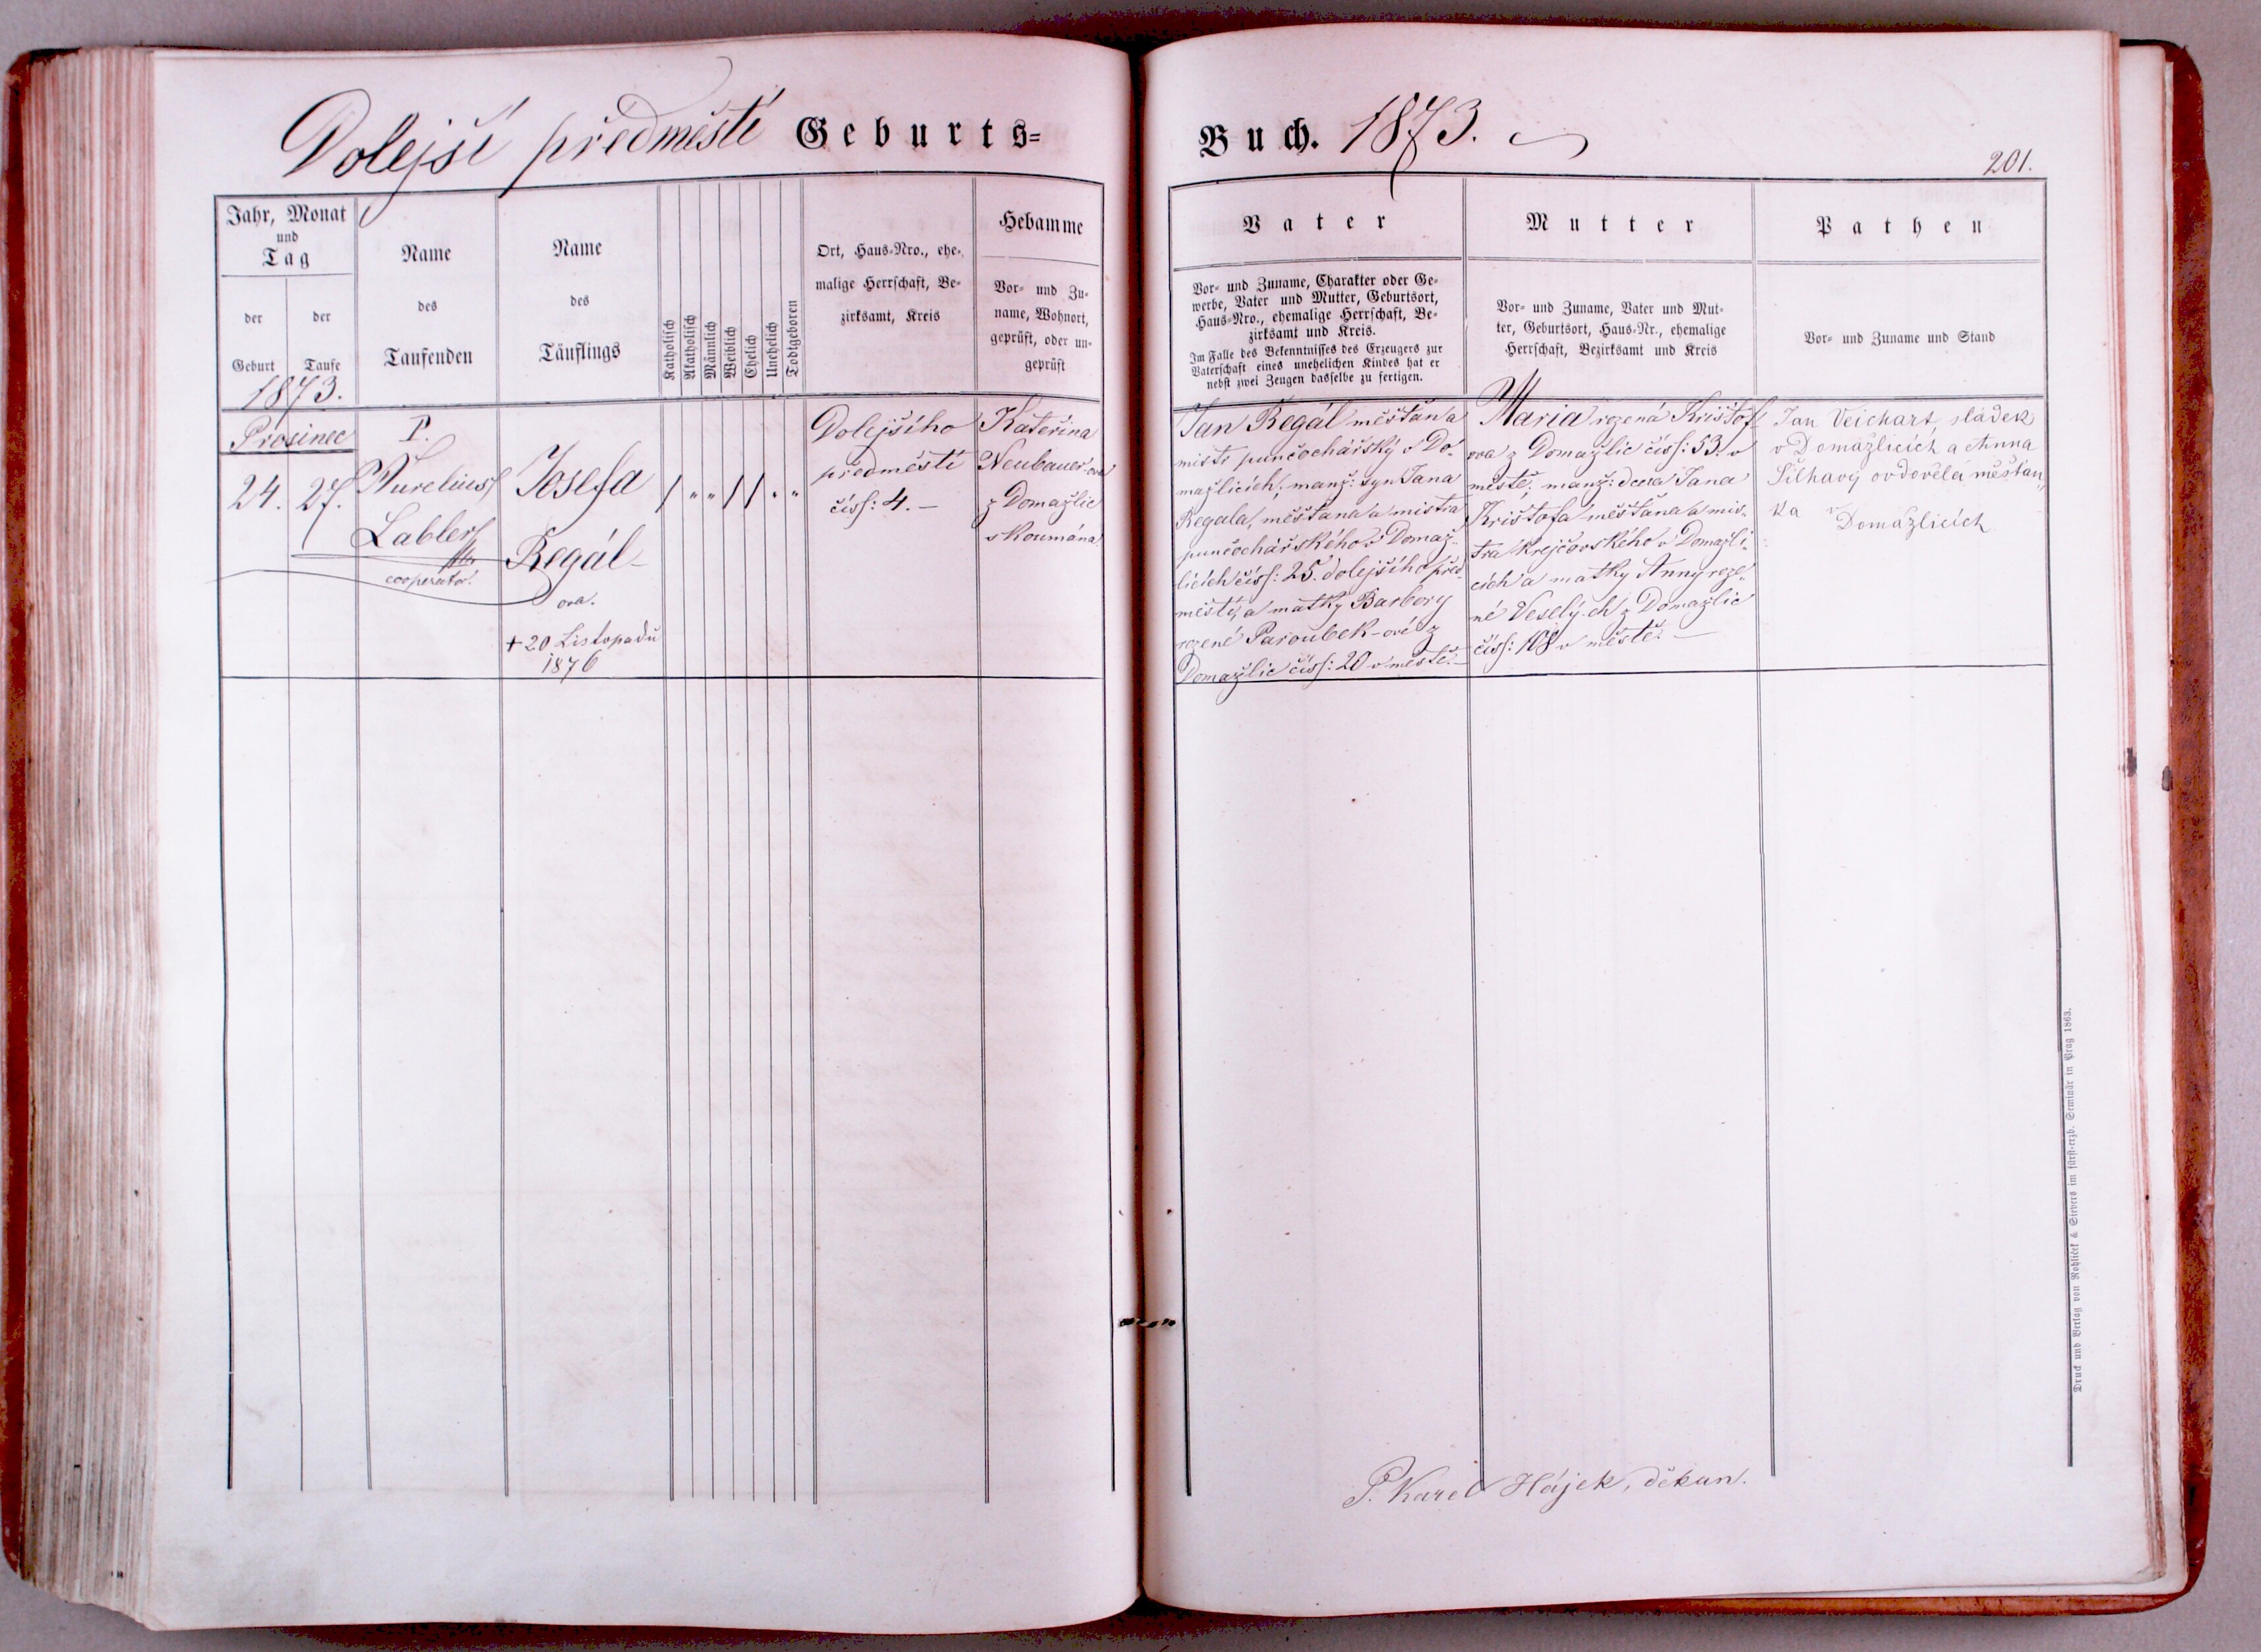 Dolejší předměstí Geburts=
Buch. 1873.
201.
Jahr, Monat
und
Tag
der
Geburt
der
Taufe
1873.
Name
des
Taufenden
Name
des
Täuflings
Katholisch
Akatholisch
Männlich
Weiblich
Ehelich
Unehelich
Todtgeboren
Ort, Haus-Nro., ehe-
malige Herrschaft, Be-
zirksamt, Kreis
Hebamme
Vor- und Zu-
name, Wohnort,
geprüft, oder un-
geprüft
Vater
Vor- und Zuname, Charakter oder Ge-
werbe, Vater und Mutter, Geburtsort,
Haus-Nro., ehemalige Herrschaft, Be-
zirksamt und Kreis.
Im Falle des Bekenntnisses des Erzeugers zur
Vaterschaft eines unehelichen Kindes hat er
nebst zwei Zeugen dasselbe zu fertigen.
Mutter
Vor- und Zuname, Vater und Mut-
ter, Geburtsort, Haus-Nr., ehemalige
Herrschaft, Bezirksamt und Kreis
Pathen
Vor- und Zuname und Stand
Prosinec
24. 27.
P.
Aurelius
Labler
cooperator.
Josefa
Regál-
ova.
+ 20 Listopadu
1876
/ " " / / " "
Dolejšího
předměstí
čísl: 4. —
Kateřina
Neubauer-ova
z Domažlic
skoumána.
Jan Regál měšťan a
mistr punčochářský v Do-
mažlicích; manž: syn Jana
Regala, měšťana a mistra
punčochářského v Domaž-
licích čísl: 25. dolejšího před-
městí, a matky Barbory
rozené Paroubek-ové z
Domažlic čísl: 20 v městě. —
Maria rozená Krištof-
ova z Domažlic čísl: 53. v
městě; manž: dcera Jana
Krištofa měšťana a mis-
tra krejčovského v Domažli-
cích a matky Anny roze-
né Veselý-ch z Domažlic
čísl: 108 v městě. —
Jan Veichart, sládek
v Domažlicích a Anna
Šilhavý ovdovělá měšťan-
ka v Domažlicích
P. Karel Hájek, děkan.
Druck und Verlag von Rohlíček & Sievers im fürst-erzb. Seminär in Prag 1863.